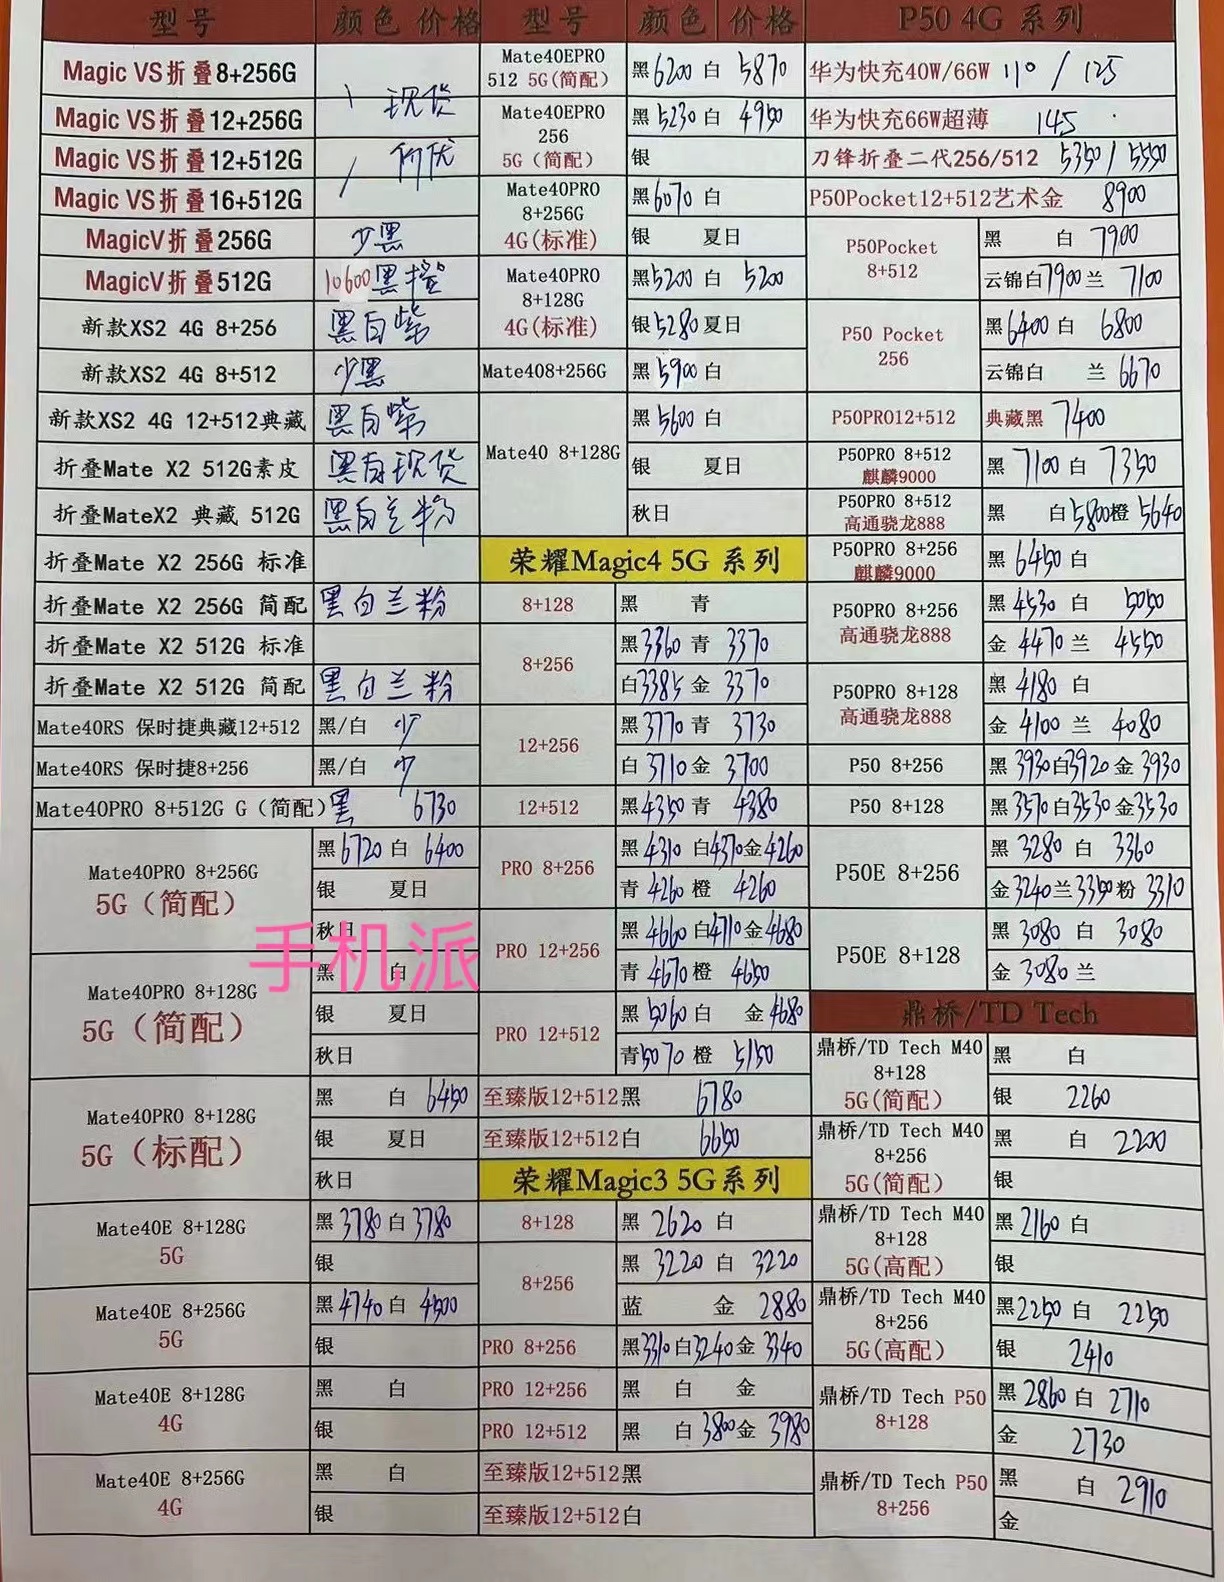 型号 颜色 价格
Magic VS折叠8+256G
Magic VS折叠12+256G 现货
Magic VS折叠12+512G 价优
Magic VS折叠16+512G
MagicV折叠256G 少黑
MagicV折叠512G 10600黑橙
新款XS2 4G 8+256 黑白紫
新款XS2 4G 8+512 少黑
新款XS2 4G 12+512典藏 黑白紫
折叠Mate X2 512G素皮 黑白现货
折叠MateX2 典藏 512G 黑白兰粉
折叠Mate X2 256G 标准
折叠Mate X2 256G 简配 黑白兰粉
折叠Mate X2 512G 标准
折叠Mate X2 512G 简配 黑白兰粉
Mate40RS 保时捷典藏12+512 黑/白 少
Mate40RS 保时捷8+256 黑/白 少
Mate40PRO 8+512G G（简配）黑 6730
Mate40PRO 8+256G
5G（简配）
黑6720 白 6400
银 夏日
秋日
Mate40PRO 8+128G
5G（简配）
黑 白
银 夏日
秋日
Mate40PRO 8+128G
5G（标配）
黑 白 6450
银 夏日
秋日
Mate40E 8+128G
5G
黑3780白3780
银
Mate40E 8+256G
5G
黑4740白4500
银
Mate40E 8+128G
4G
黑 白
银
Mate40E 8+256G
4G
黑 白
银
型号 颜色 价格
Mate40EPRO
512 5G(简配)
黑6200 白 5870
Mate40EPRO
256
5G（简配）
黑5230白 4950
银
Mate40PRO
8+256G
4G(标准)
黑6070 白
银 夏日
Mate40PRO
8+128G
4G(标准)
黑5200 白 5200
银5280夏日
Mate408+256G 黑5900白
Mate40 8+128G
黑5600 白
银 夏日
秋日
荣耀Magic4 5G 系列
8+128 黑 青
8+256
黑3360 青 3370
白3385金 3370
12+256
黑3770 青 3730
白3710金 3700
12+512 黑4350青 4380
PRO 8+256
黑4310 白4370金4260
青 4260 橙 4260
PRO 12+256
黑4660白4710金4680
青 4670 橙 4650
PRO 12+512
黑5060白 金4680
青5070 橙 5150
至臻版12+512黑 6780
至臻版12+512白 6650
荣耀Magic3 5G系列
8+128 黑 2620 白
8+256
黑 3220 白 3220
蓝 金 2880
PRO 8+256 黑3310白3240金 3340
PRO 12+256 黑 白 金
PRO 12+512 黑 白3800金 3980
至臻版12+512黑
至臻版12+512白
P50 4G 系列
华为快充40W/66W 110 / 125
华为快充66W超薄 145
刀锋折叠二代256/512 5350/5550
P50Pocket12+512艺术金 8900
P50Pocket
8+512
黑 白 7900
云锦白7900兰 7100
P50 Pocket
256
黑6400白 6800
云锦白 兰 6670
P50PRO12+512 典藏黑 7400
P50PRO 8+512
麒麟9000
黑 7100白 7350
P50PRO 8+512
高通骁龙888
黑 白5800橙 5640
P50PRO 8+256
麒麟9000
黑 6450白
P50PRO 8+256
高通骁龙888
黑 4530 白 5050
金 4470 兰 4550
P50PRO 8+128
高通骁龙888
黑 4180 白
金 4100 兰 4080
P50 8+256 黑 3930白3920 金 3930
P50 8+128 黑 3570白3530金3530
P50E 8+256
黑 3280 白 3360
金3240兰3350粉 3310
P50E 8+128
黑 3080 白 3080
金 3080 兰
鼎桥/TD Tech
鼎桥/TD Tech M40
8+128
5G(简配)
黑 白
银 2260
鼎桥/TD Tech M40
8+256
5G(简配)
黑 白 2200
银
鼎桥/TD Tech M40
8+128
5G(高配)
黑2160 白
银
鼎桥/TD Tech M40
8+256
5G(高配)
黑2250 白 2250
银 2410
鼎桥/TD Tech P50
8+128
黑 2860 白 2710
金 2730
鼎桥/TD Tech P50
8+256
黑 白 2910
金
手机派